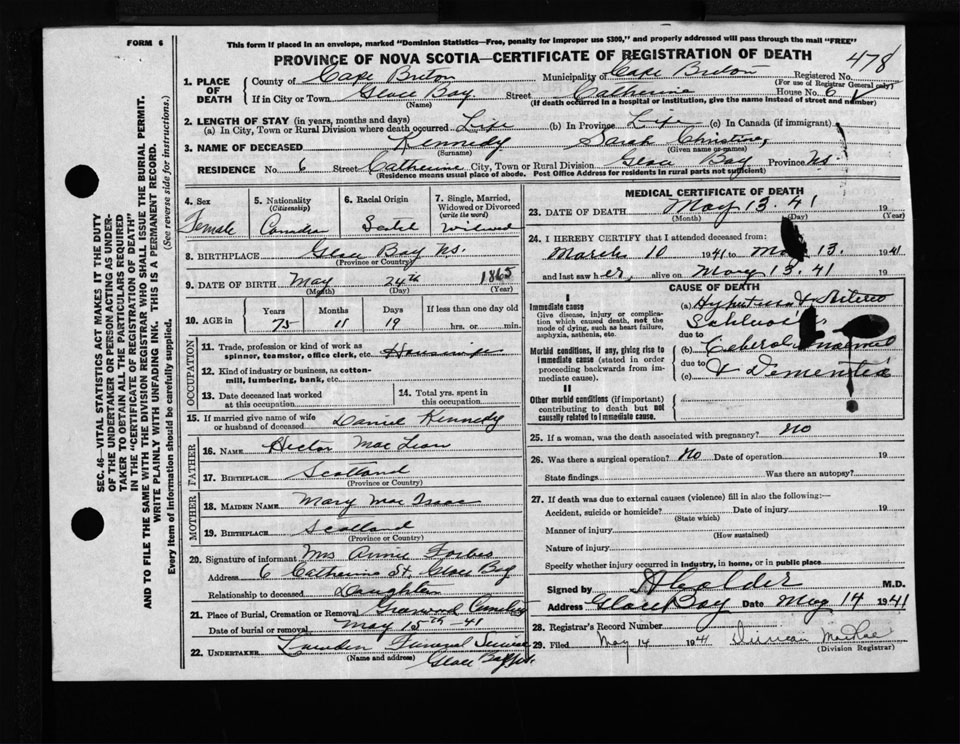 FORM 6
This form if placed in an envelope, marked "Dominion Statistics—Free, penalty for improper use $300," and properly addressed will pass through the mail "FREE"
PROVINCE OF NOVA SCOTIA—CERTIFICATE OF REGISTRATION OF DEATH
478
1. PLACE OF DEATH County of Cape Breton Municipality of Cape Breton Registered No.
(For use of Registrar General only)
If in City or Town Glace Bay Street Catherine House No. 6
(Name) (If death occurred in a hospital or institution, give the name instead of street and number)
2. LENGTH OF STAY (in years, months and days)
(a) In City, Town or Rural Division where death occurred Life (b) In Province Life (c) In Canada (if immigrant)
3. NAME OF DECEASED Kennedy Sarah Christine,
(Surname) (Given name or names)
RESIDENCE No. 6 Street Catherine City, Town or Rural Division Glace Bay Province NS.
(Residence means usual place of abode. Post Office Address for residents in rural parts not sufficient)
4. Sex Female
5. Nationality (Citizenship) Canadian
6. Racial Origin
7. Single, Married, Widowed or Divorced (write the word) Widowed
8. BIRTHPLACE Glace Bay NS.
(Province or Country)
9. DATE OF BIRTH May 24th 1865
(Month) (Day) (Year)
10. AGE in Years 75 Months 11 Days 19 If less than one day old hrs. or min.
OCCUPATION
11. Trade, profession or kind of work as spinner, teamster, office clerk, etc. Housewife
12. Kind of industry or business, as cotton-mill, lumbering, bank, etc.
13. Date deceased last worked at this occupation
14. Total yrs. spent in this occupation
15. If married give name of wife or husband of deceased Daniel Kennedy
FATHER
16. NAME Hector MacLean
17. BIRTHPLACE Scotland
(Province or Country)
MOTHER
18. MAIDEN NAME Mary MacIsaac
19. BIRTHPLACE Scotland
(Province or Country)
20. Signature of informant Mrs Annie Forbes
Address 6 Catherine St Glace Bay
Relationship to deceased Daughter
21. Place of Burial, Cremation or Removal Greenwood Cemetery
Date of burial or removal May 15th -41
22. UNDERTAKER Funeral Service
(Name and address) Glace Bay NS.
MEDICAL CERTIFICATE OF DEATH
23. DATE OF DEATH May 13. 41 19
(Month) (Day) (Year)
24. I HEREBY CERTIFY that I attended deceased from:
March 10 1941 to May 13. 1941
and last saw her alive on May 13. 41 19
CAUSE OF DEATH
I
Immediate cause
Give disease, injury or complication which caused death, not the mode of dying, such as heart failure, asphyxia, asthenia, etc.
Morbid conditions, if any, giving rise to immediate cause (stated in order proceeding backwards from immediate cause).
II
Other morbid conditions (if important) contributing to death but not causally related to immediate cause.
(a) & Arterio
due to
(b) Cerebral
due to
(c) & Dementia
25. If a woman, was the death associated with pregnancy? No
26. Was there a surgical operation? No Date of operation 19
State findings Was there an autopsy?
27. If death was due to external causes (violence) fill in also the following:—
Accident, suicide or homicide? Date of injury 19
(State which)
Manner of injury
(How sustained)
Nature of injury
Specify whether injury occurred in industry, in home, or in public place
Signed by M.D.
Address Glace Bay Date May 14 1941
28. Registrar's Record Number
29. Filed May 14 1941 Duncan MacRae
(Division Registrar)
SEC. 46—VITAL STATISTICS ACT MAKES IT THE DUTY OF THE UNDERTAKER OR PERSON ACTING AS UNDERTAKER TO OBTAIN ALL THE PARTICULARS REQUIRED IN THE "CERTIFICATE OF REGISTRATION OF DEATH"
AND TO FILE THE SAME WITH THE DIVISION REGISTRAR WHO SHALL ISSUE THE BURIAL PERMIT.
WRITE PLAINLY WITH UNFADING INK. THIS IS A PERMANENT RECORD.
Every item of information should be carefully supplied. (See reverse side for instructions).